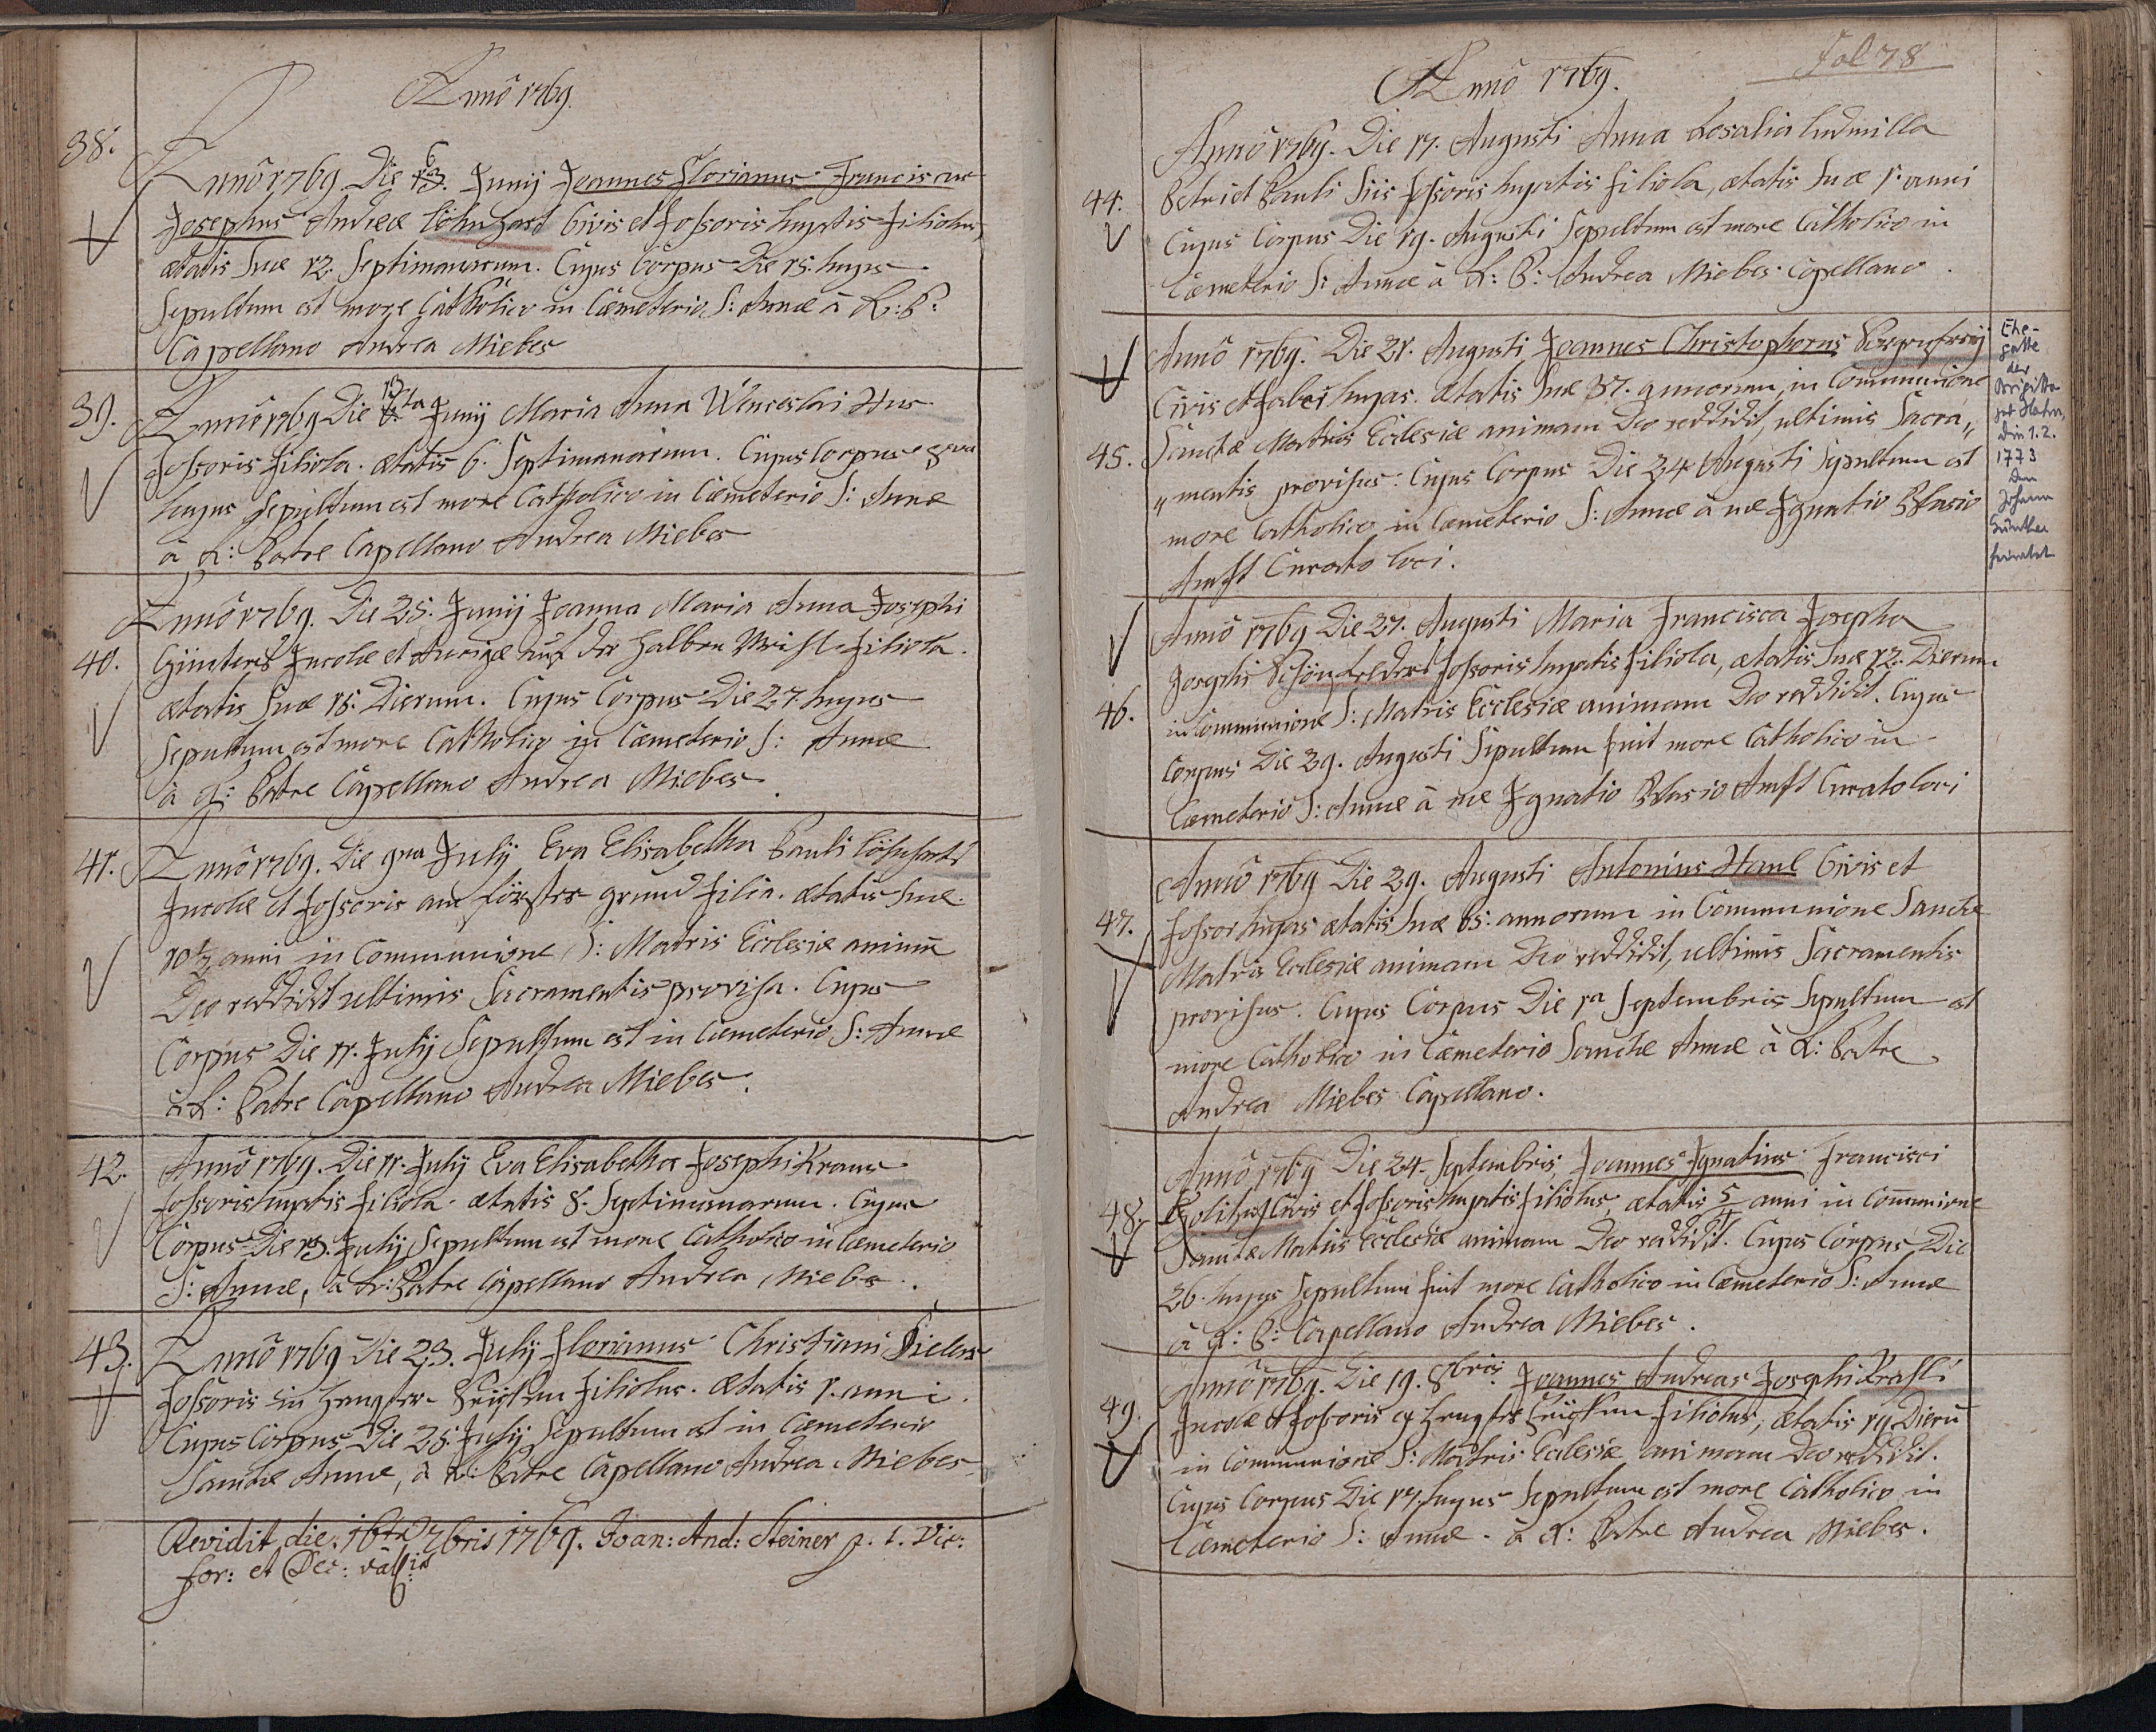 Annô 1769.
38.
Annô 1769 Die 6 Junij Joannes Florianus Franciscus
Josephus Andreæ Löhnhart Civis et foßoris hujatis filiolus,
ætatis suæ 12. Septimanarum. Cujus Corpus Die 15. hujus
Sepultum est more Catholico in Cæmeterio S: Annæ à R: P:
Capellano Andrea Miebes
39.
Annô 1769 Die 13 Junij Maria Anna Wenceslai Hus
foßoris filiola. ætatis 6. Septimanarum. Cujus Corpus 8va
hujus Sepultum est more Catholico in Cæmeterio S: Annæ
à R: Patre Capellano Andrea Miebes
40.
Annô 1769. Die 25. Junij Joanna Maria Anna Josephi
Günters Incolæ et Aurigæ auf der halben Meihl filiola.
ætatis suæ 15. Dierum. Cujus Corpus Die 27. hujus
Sepultum est more Catholico in Cæmeterio S: Annæ
à R: Patre Capellano Andrea Miebes.
41.
Annô 1769. Die 9na Julij Eva Elisabetha Pauli Löhnharts
Incolæ et foßoris am förster grund filia. ætatis suæ
10½ anni in Communione S: Matris Ecclesiæ animam
Deo reddidit ultimis Sacramentis provisa. Cujus
Corpus Die 11. Julij Sepultum est in Cæmeterio S: Annæ
à R: Patre Capellano Andrea Miebes.
42.
Annô 1769. Die 11. Julij Eva Elisabetha Josephi Kraus
foßoris hujatis filiola. ætatis 8. Septimanarum. Cujus
Corpus Die 13. Julij Sepultum est more Catholico in Cæmeterio
S: Annæ, à R: Patre Capellano Andrea Miebes.
43.
Annô 1769 Die 23. Julij Florianus Christiani
foßoris in filiolus. ætatis 1. anni.
Cujus Corpus Die 25. Julij Sepultum est in Cæmeterio
Sanctæ Annæ, à R: Patre Capellano Andrea Miebes
Revidit die 16ta 7bris 1769. Joan: And: Steiner p. t. Vic:
for: et Dec:
Annô 1769.
Fol 78
Annô 1769. Die 17. Augusti Anna Rosalia Ludmilla
44.
Petri et Pauli Siis foßoris hujatis filiola, ætatis suæ 1. anni
Cujus Corpus Die 19. Augusti Sepultum est more Catholico in
Cæmeterio S: Annæ à R: P: Andrea Miebes Capellano.
Annô 1769. Die 21. Augusti Joannes Christophorus
Civis et fabri hujas. ætatis suæ 37. annorum, in Communione
45.
Sanctæ Matris Ecclesiæ animam Deo reddidit, ultimis Sacra„
„mentis provisus. Cujus Corpus Die 24 Augusti Sepultum est
more Catholico in Cæmeterio S: Annæ à me Ignatio Blasio
Amft Curato loci.
Ehe-
gatte
der
Brigitta
geb Hahn,
die 1.2.
1773
den
Johann
Günther
heiratet
Annô 1769 Die 27. Augusti Maria Francisca Josepha
Josephi Schönfelder foßoris hujatis filiola, ætatis suæ 12. Dierum
46.
in Communione S: Matris Ecclesiæ animam Deo reddidit. Cujus
Corpus Die 29. Augusti Sepultum fuit more Catholico in
Cæmeterio S: Annæ à me Ignatio Blasio Amft Curato loci
Annô 1769 Die 29. Augusti Antonius Haml Civis et
47.
foßor hujas ætatis suæ 65. annorum in Communione Sanctæ
Matris Ecclesiæ animam Deo reddidit, ultimis Sacramentis
provisus. Cujus Corpus Die 1a Septembris Sepultum est
more Catholico in Cæmeterio Sanctæ Annæ à R: Patre
Andrea Miebes Capellano.
Annô 1769 Die 24. Septembris Joannes Ignatius Francisci
48.
Civis et foßoris hujatis filiolus, ætatis 5/4 anni in Communione
Sanctæ Matris Ecclesiæ animam Deo reddidit. Cujus Corpus Die
26. hujus Sepultum fuit more Catholico in Cæmeterio S: Annæ
à R: P: Capellano Andrea Miebes.
Annô 1769. Die 19. 8bris Joannes Andreas Josephi
49.
Incolæ et foßoris filiolus, ætatis 19 Dierū
in Communione S: Matris Ecclesiæ animam Deo reddidit.
Cujus Corpus Die 17. hujus Sepultum est more Catholico in
Cæmeterio S: Annæ. à R: Patre Andrea Miebes.